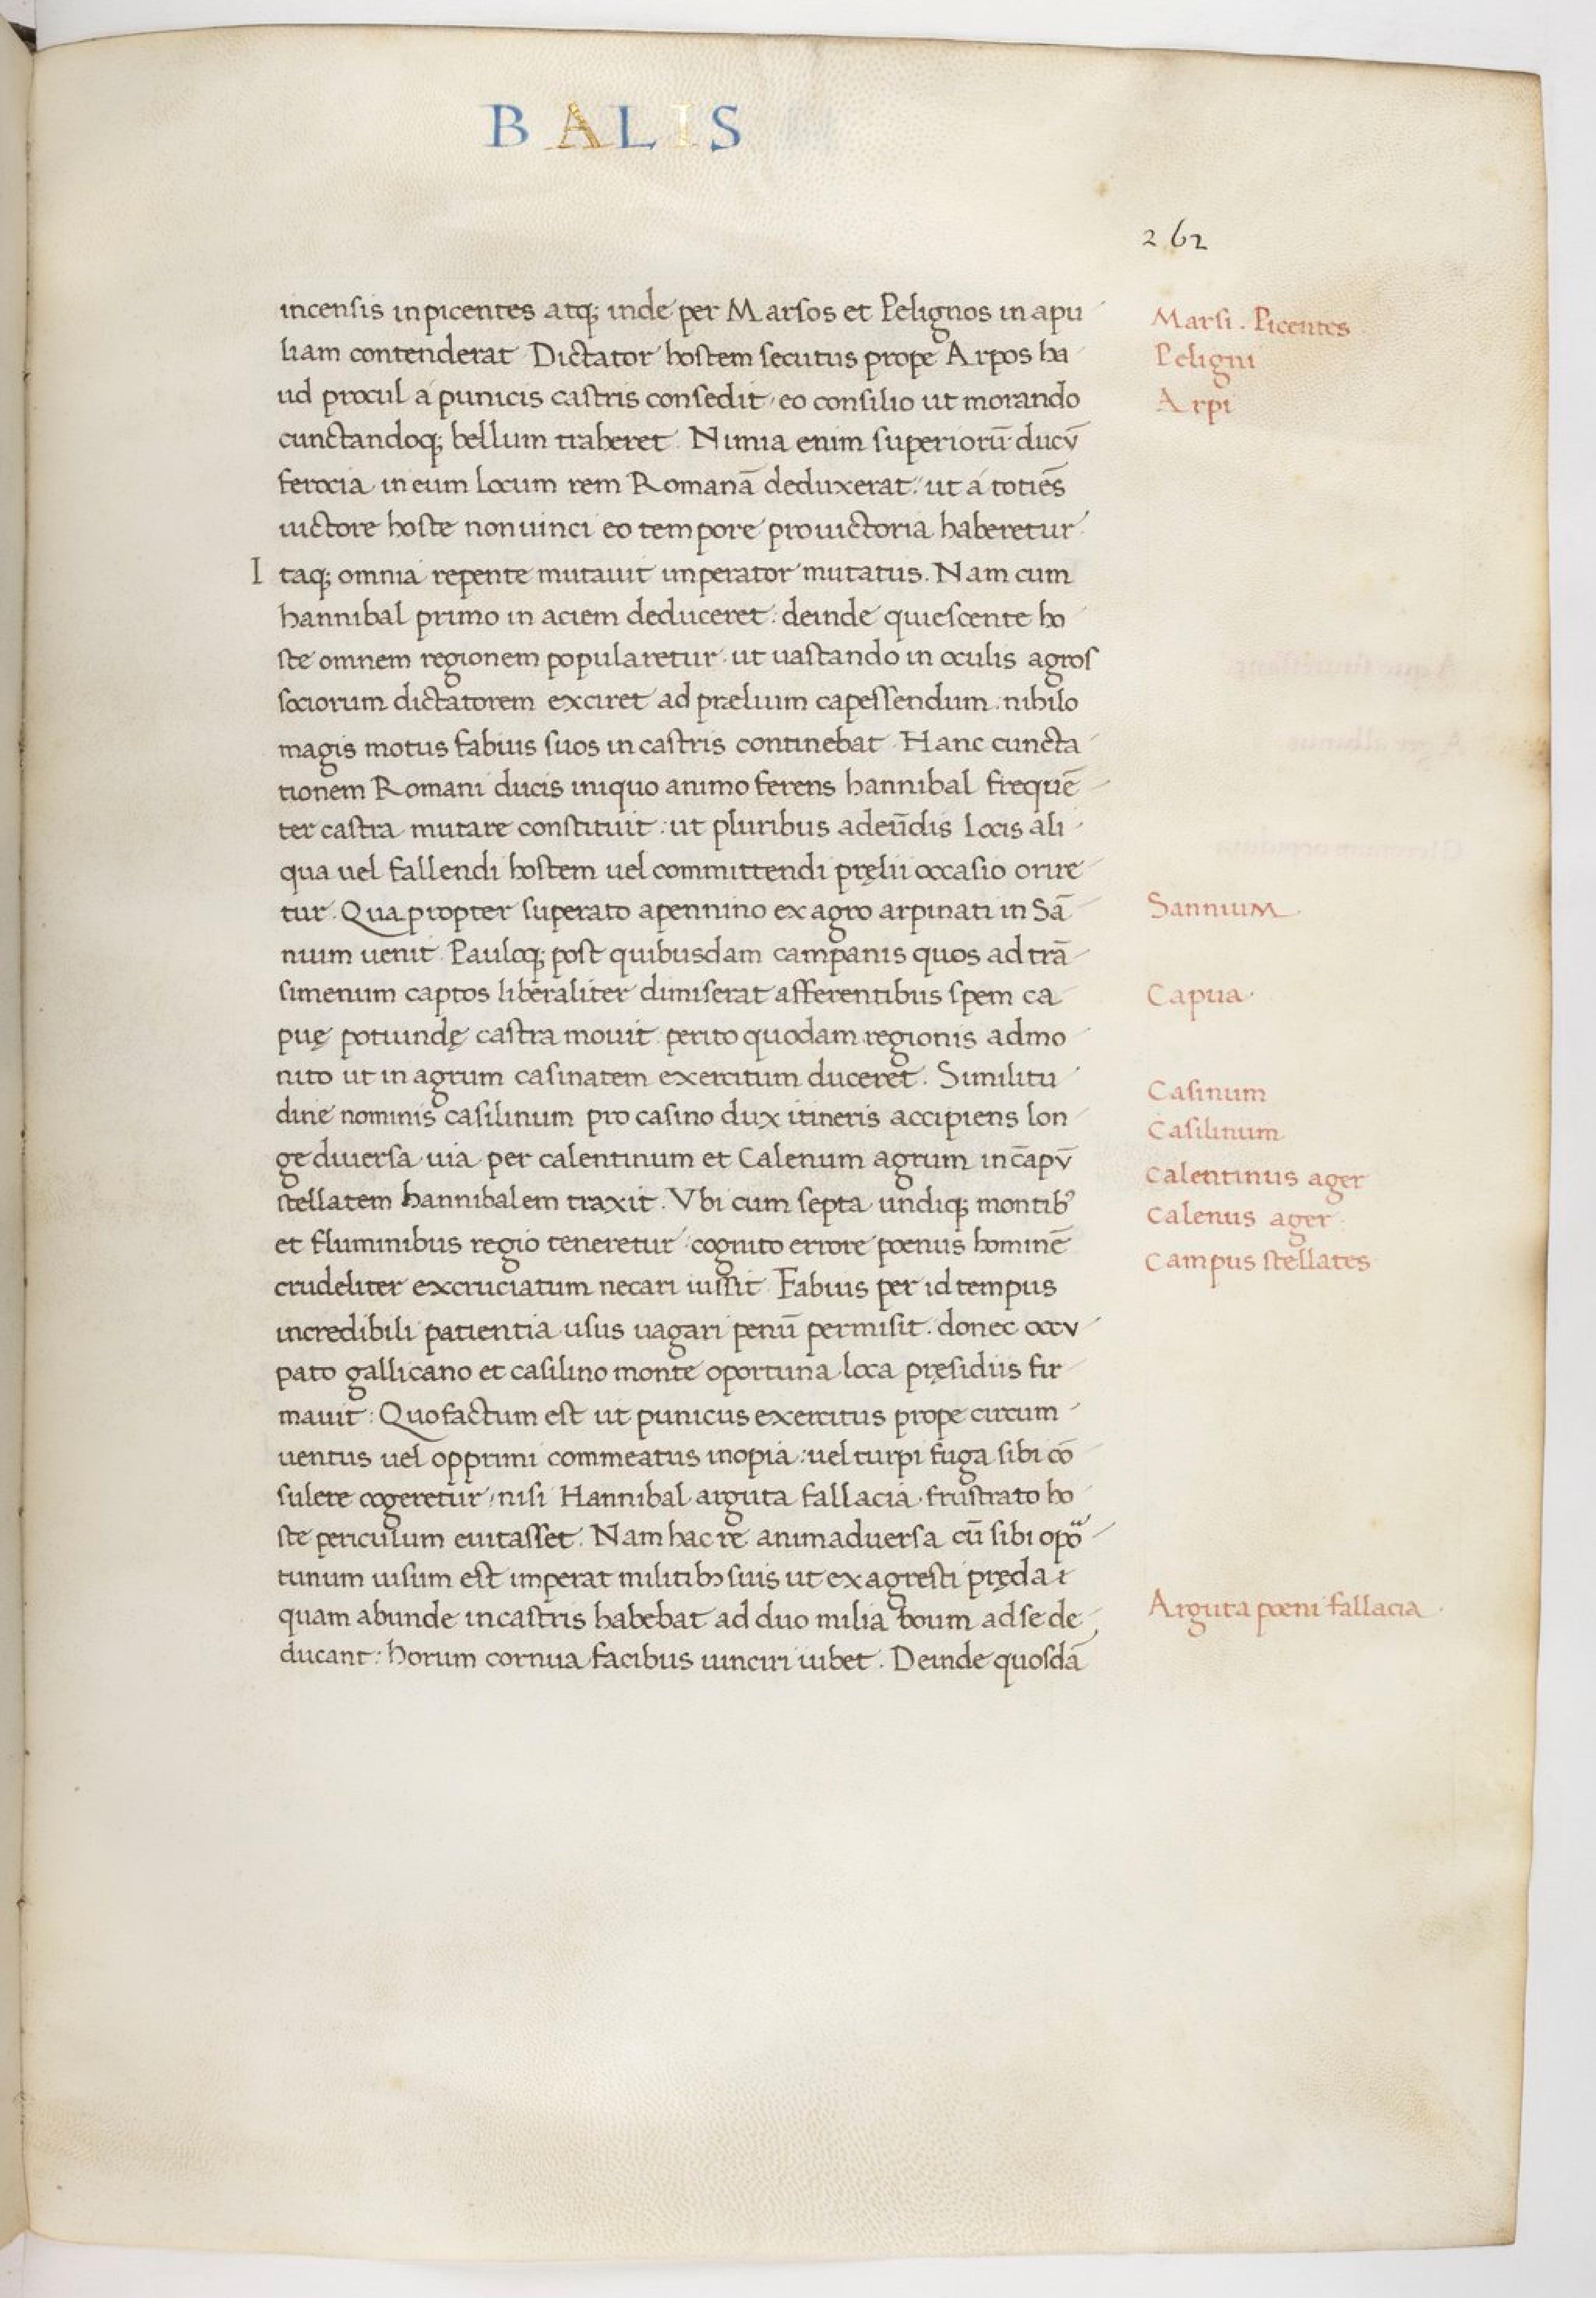 BALIS
262
incensis in picentes atq; inde per Marsos et Pelignos in apu
liam contenderat. Dictator hostem secutus prope Arpos ha
ud procul a punicis castris consedit, eo consilio ut morando
cunctandoq; bellum traheret. Nimia enim superiorū ducv̄
ferocia in eum locum rem Romanā deduxerat: ut á totiēs
uictore hoste non uinci eo tempore pro uictoria haberetur.
Itaq; omnia repente mutauit imperator mutatus. Nam cum
hannibal primo in aciem deduceret: deinde quiescente ho
ste omnem regionem popularetur. ut uastando in oculis agros
sociorum dictatorem exciret ad prælium capessendum. nihilo
magis motus fabius suos in castris continebat. Hanc cuncta
tionem Romani ducis iniquo animo ferens hannibal frequē
ter castra mutare constituit: ut pluribus adeūdis locis ali
qua uel fallendi hostem uel committendi pręlii occasio orire
tur. Quapropter superato apennino ex agro arpinati in Sā
nium uenit. Pauloq; post quibusdam campanis quos ad trā
simenum captos liberaliter dimiserat afferentibus spem ca
puę potiundę castra mouit. perito quodam regionis admo
nito ut in agrum casinatem exercitum duceret. Similitu
dine nominis casilinum pro casino dux itineris accipiens lon
ge diuersa uia per calentinum et Calenum agrum in cāpv̄
stellatem hannibalem traxit. Vbi cum septa undiq; montib⁹
et fluminibus regio teneretur: cognito errore poenus hominē
crudeliter excruciatum necari iussit. Fabius per id tempus
incredibili patientia usus uagari penū permisit. donec occv
pato gallicano et casilino monte oportuna loca pręsidiis fir
mauit: Quo factum est ut punicus exercitus prope circum
uentus uel opprimi commeatus inopia: uel turpi fuga sibi cō
sulere cogeretur, nisi Hannibal arguta fallacia frustrato ho
ste periculum euitasset. Nam hac re animaduersa cū sibi opō
tunum uisum est imperat militibꝫ suis ut ex agresti pręda
quam abunde in castris habebat ad duo milia boum ad se de
ducant: horum cornua facibus uinciri iubet. Deinde quosdā
Marsi. Picentes
Peligni
Arpi
Sannium
Capua
Casinum
Casilinum
Calentinus ager
Calenus ager
Campus stellates
Arguta poeni fallacia